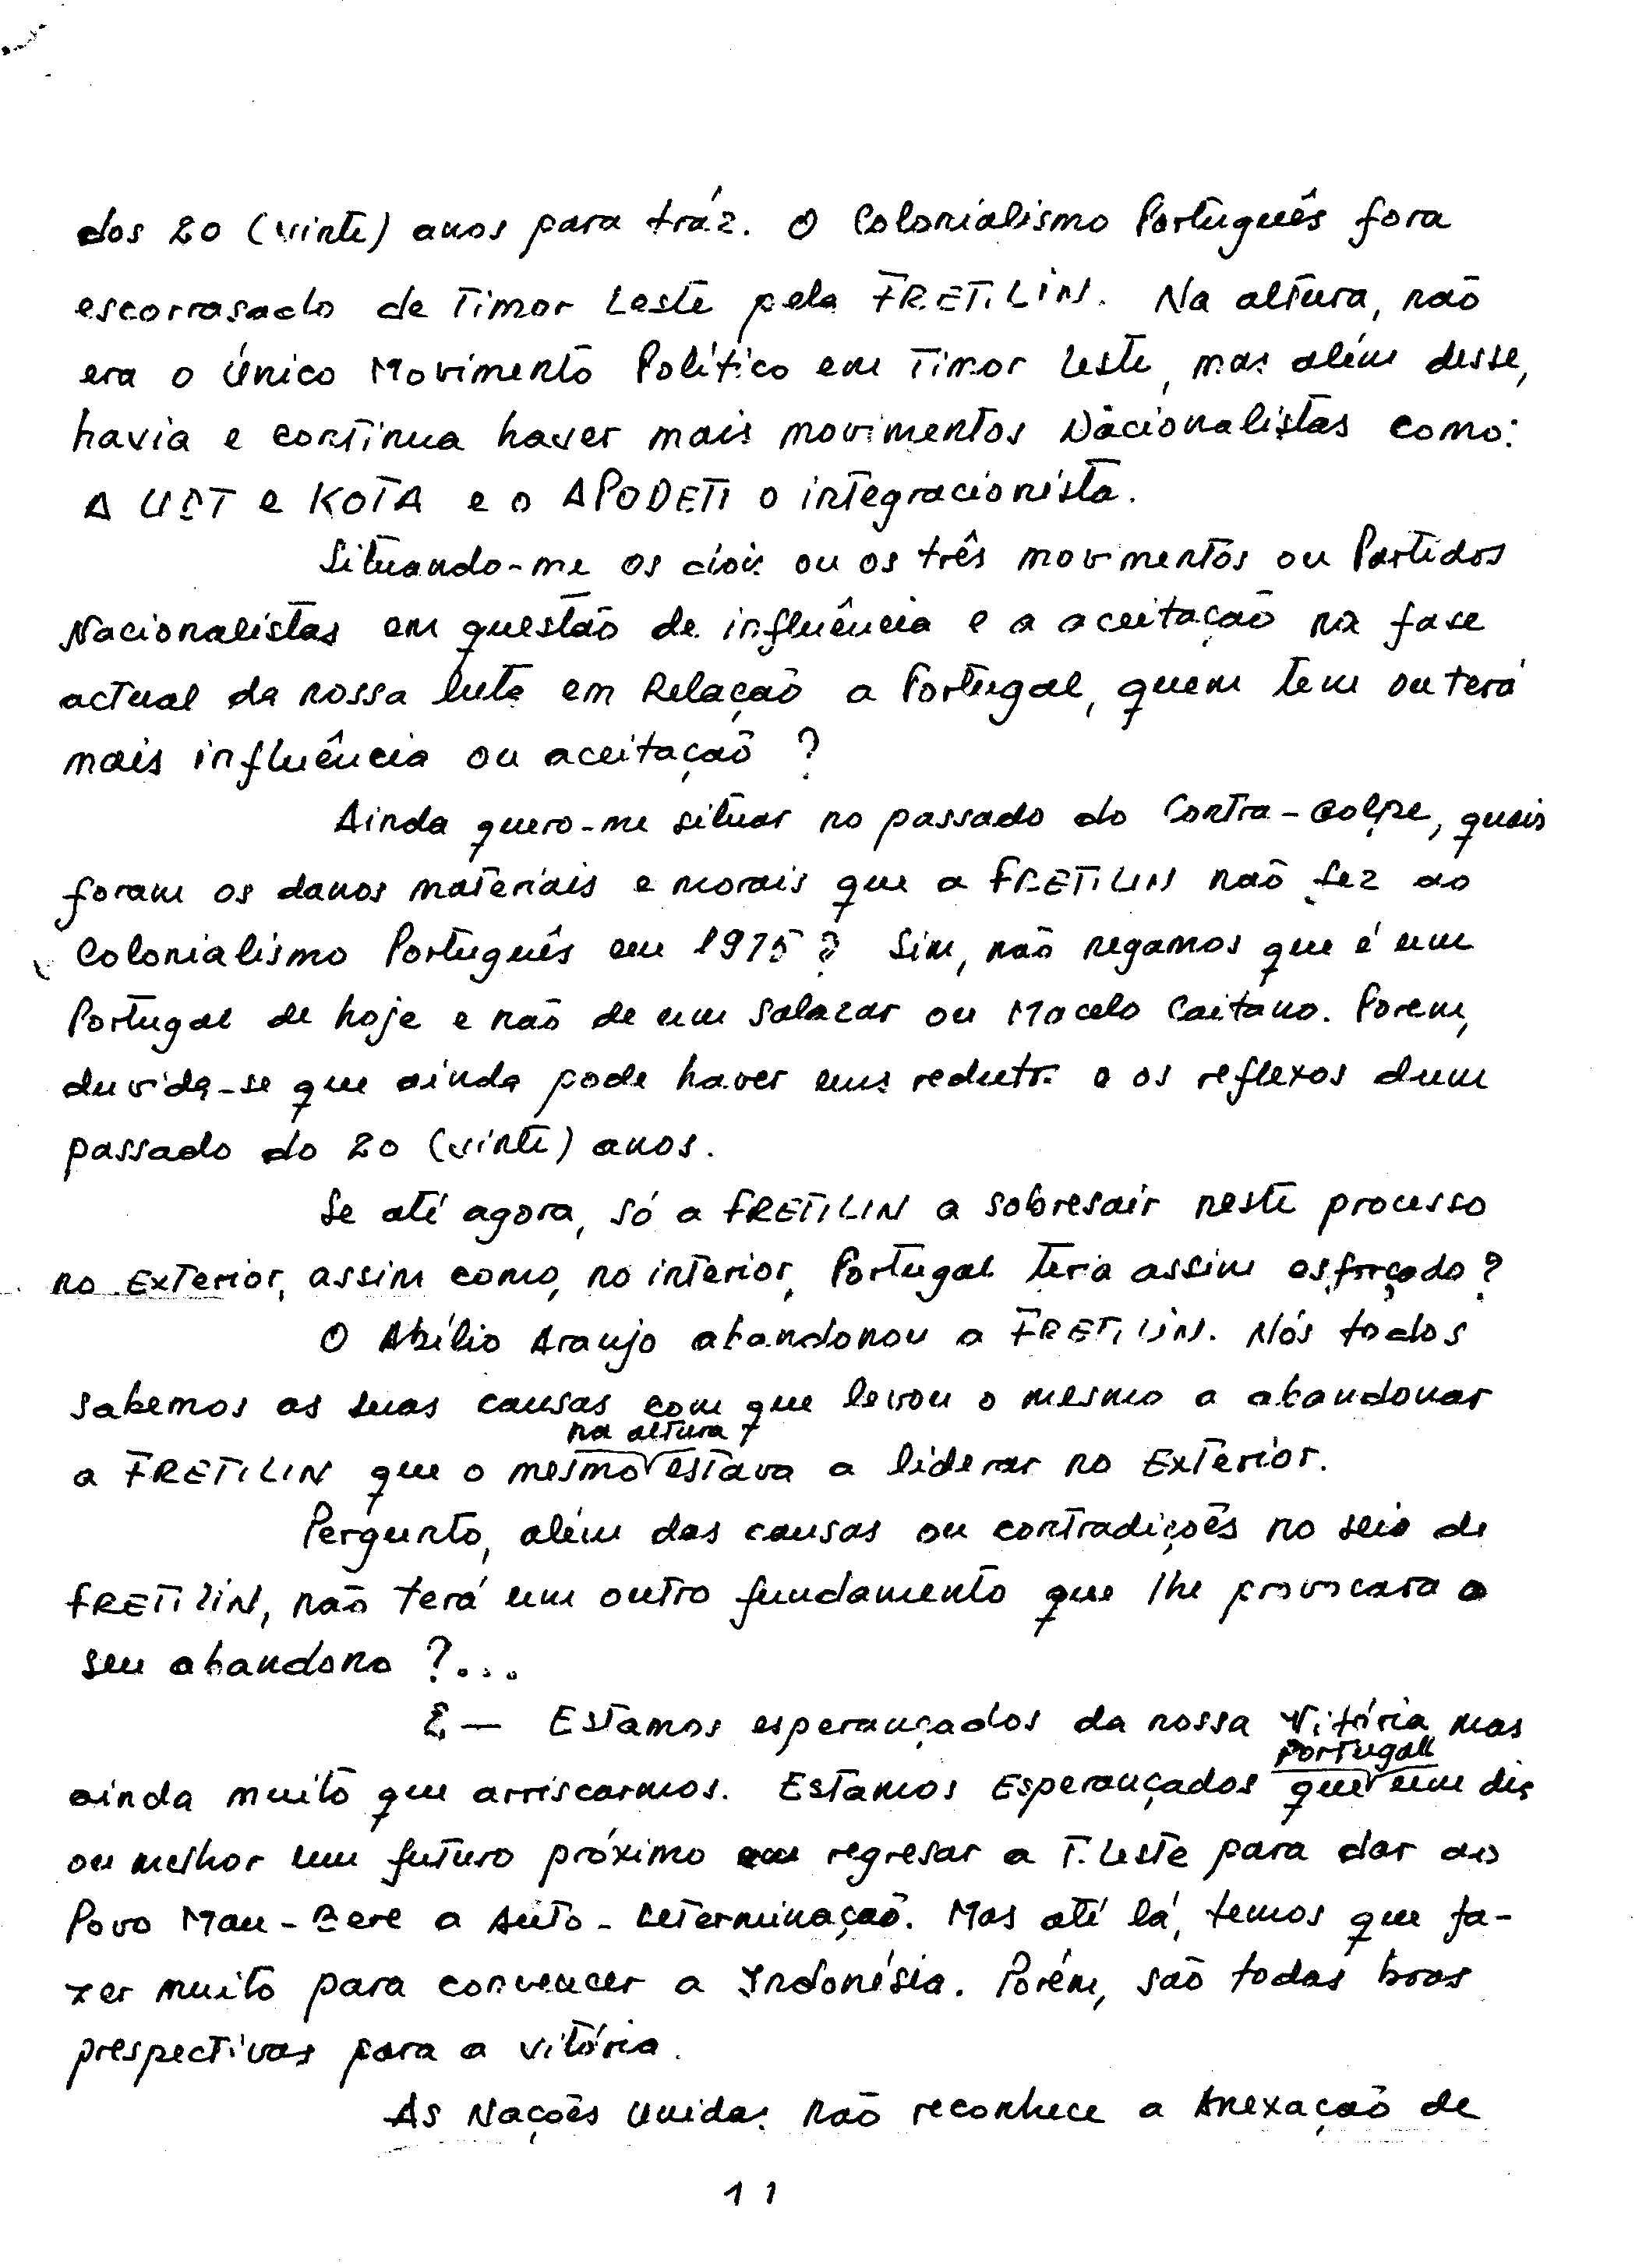 dos 20 (vinte) anos para tráz. O Colonialismo Português fora
escorrasado de Timor Leste pela FRETILIN. Na altura, não
era o Único Movimento Político em Timor Leste, mas além desse,
havia e continua haver mais movimentos Nacionalistas como:
A UDT e KOTA e o APODETI o integracionista.
Situando-me os dois ou os três movimentos ou Partidos
Nacionalistas em questão de influência e a aceitação na fase
actual da nossa luta em Relação a Portugal, quem tem ou terá
mais influência ou aceitação ?
Ainda quero-me situar no passado do Contra-Golpe, quais
foram os danos materiais e morais que a FRETILIN não fez ao
Colonialismo Português em 1975 ? Sim, não negamos que é um
Portugal de hoje e não de um Salazar ou Macelo Caetano. Porem,
duvida-se que ainda pode haver uns reduto e os reflexos dum
passado do 20 (vinte) anos.
Se até agora, só a FRETILIN a sobresair neste processo
no Exterior, assim como, no interior, Portugal teria assim esforçado ?
O Abílio Araujo abandonou a FRETILIN. Nós todos
sabemos as suas causas com que levou o mesmo a abandonar
na altura
a FRETILIN que o mesmo estava a liderar no Exterior.
Pergunto, além das causas ou contradições no seio de
FRETILIN, não terá um outro fundamento que lhe provocara o
seu abandono ?...
E — Estamos esperançados da nossa Vitória mas
Portugal
ainda muito que arriscarmos. Estamos Esperançados que um dia
ou melhor um futuro próximo regresar a T. Leste para dar ao
Povo Mau-Bere a Auto-Determinação. Mas até lá, temos que fa-
zer muito para convencer a Indonésia. Porém, são todas boas
prespectivas para a vitória.
As Nações Unidas não reconhece a Anexação de
11